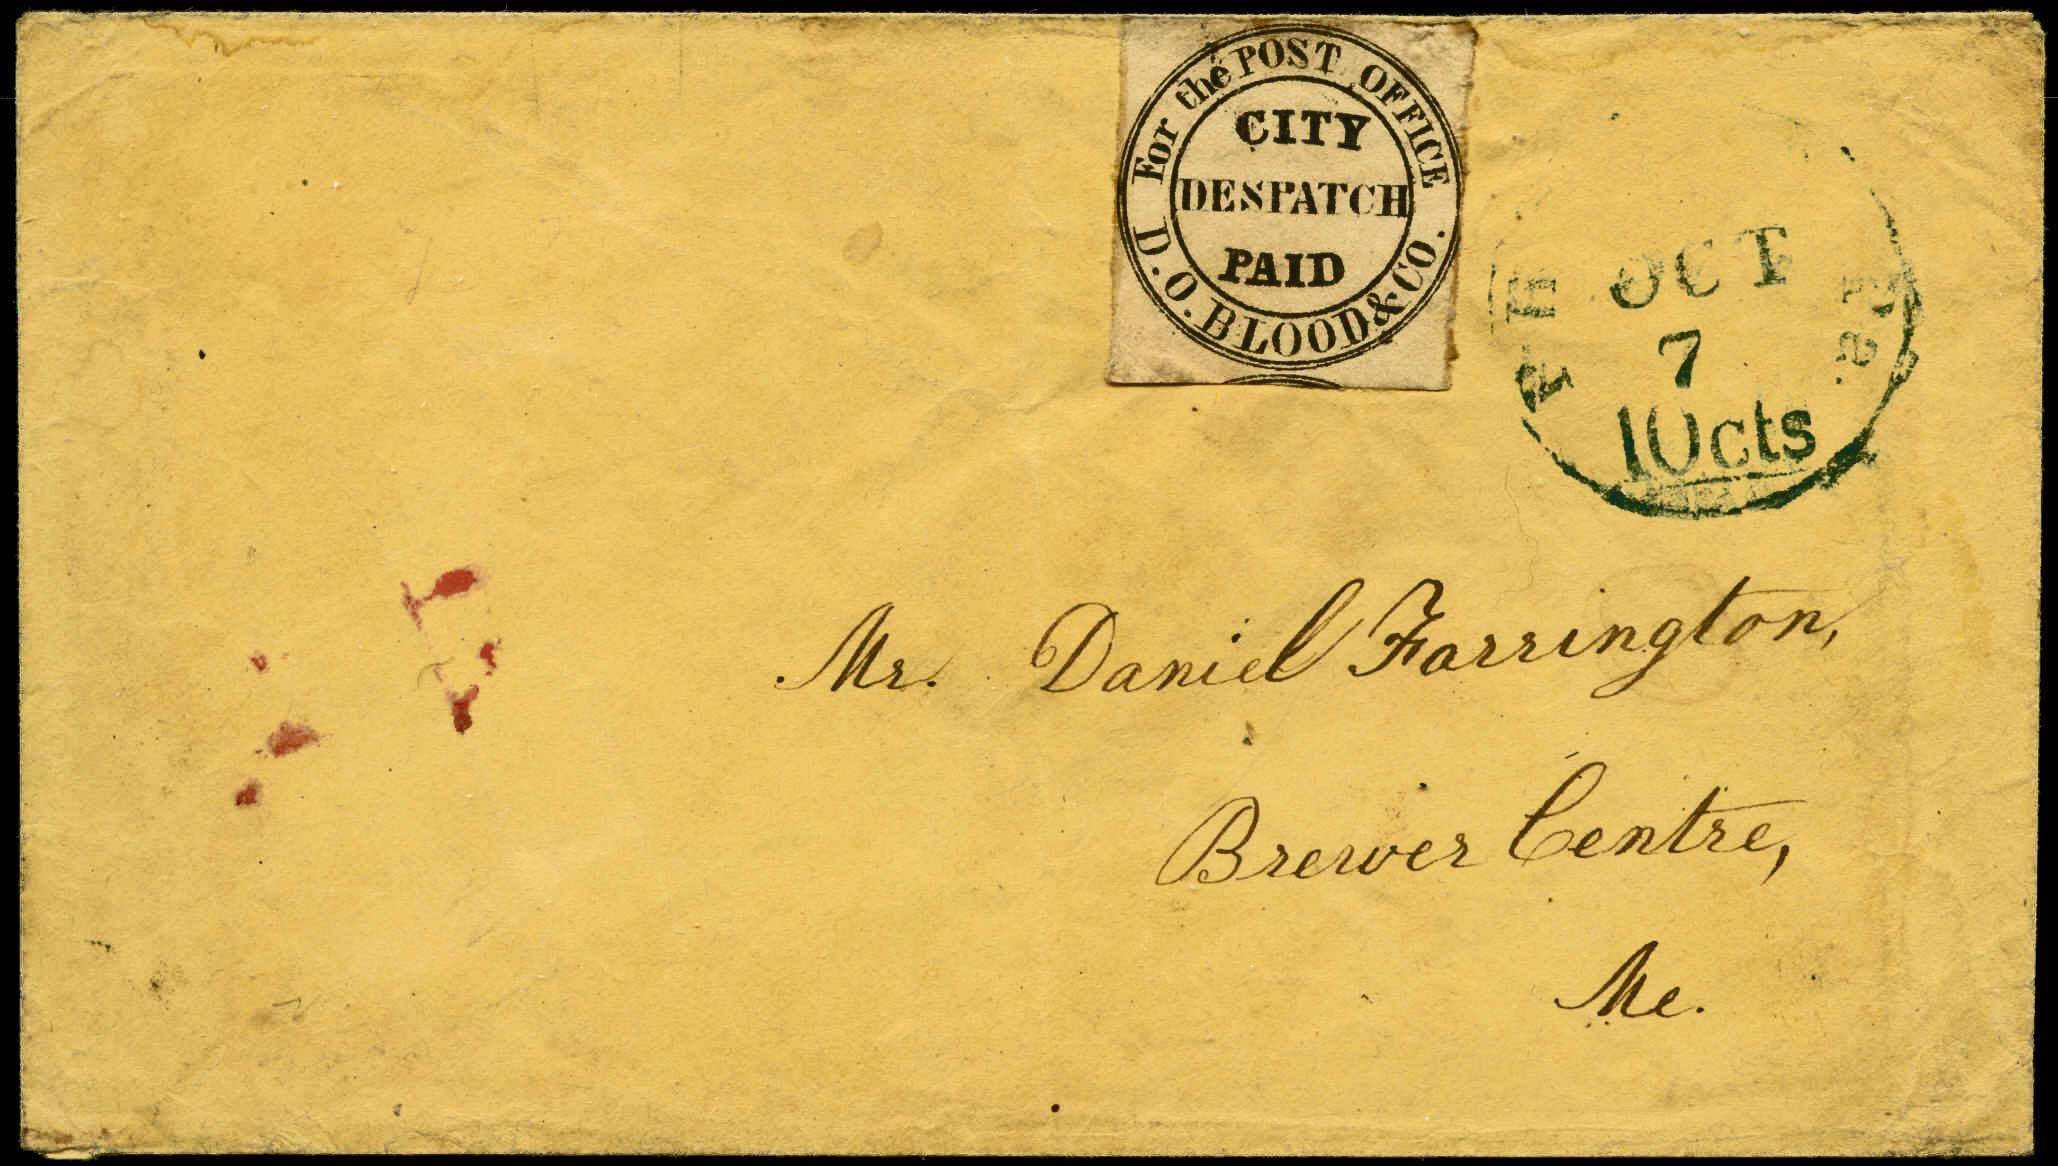 For the POST OFFICE
CITY
DESPATCH
PAID
D.O. BLOOD & CO.
OCT
7
10cts
Mr. Daniel Farrington,
Brewer Centre,
Me.